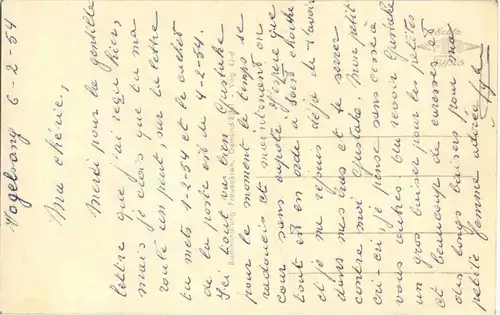 Vogelsang 6-2-54
Ma chérie,
Merci pour la gentille
lettre que j'ai reçue hier,
mais je crois que tu m'a
roulé un peut, sur la lettre
tu mets 1-2-54 et le cachet
de la poste est de 4-2-54.
Ici tout va bien Gustake
pour le moment le temps se
radoucis et maintenant on
cour sans capote. J'espère que
tout est en ordre à Sont
et je me rejouis déja de t'avoir
dans mes bras et te serrer
contre moi Gustake. Mon petit
cri-cri je pense sans cesse à
vous autres. Au revoir Gustake
un gros baiser pour les petites
et beaucoup de caresses et
des longs baisers pour ma
petite femme adorée
Buchhandlung Frauenkron, Gemünd Eifel